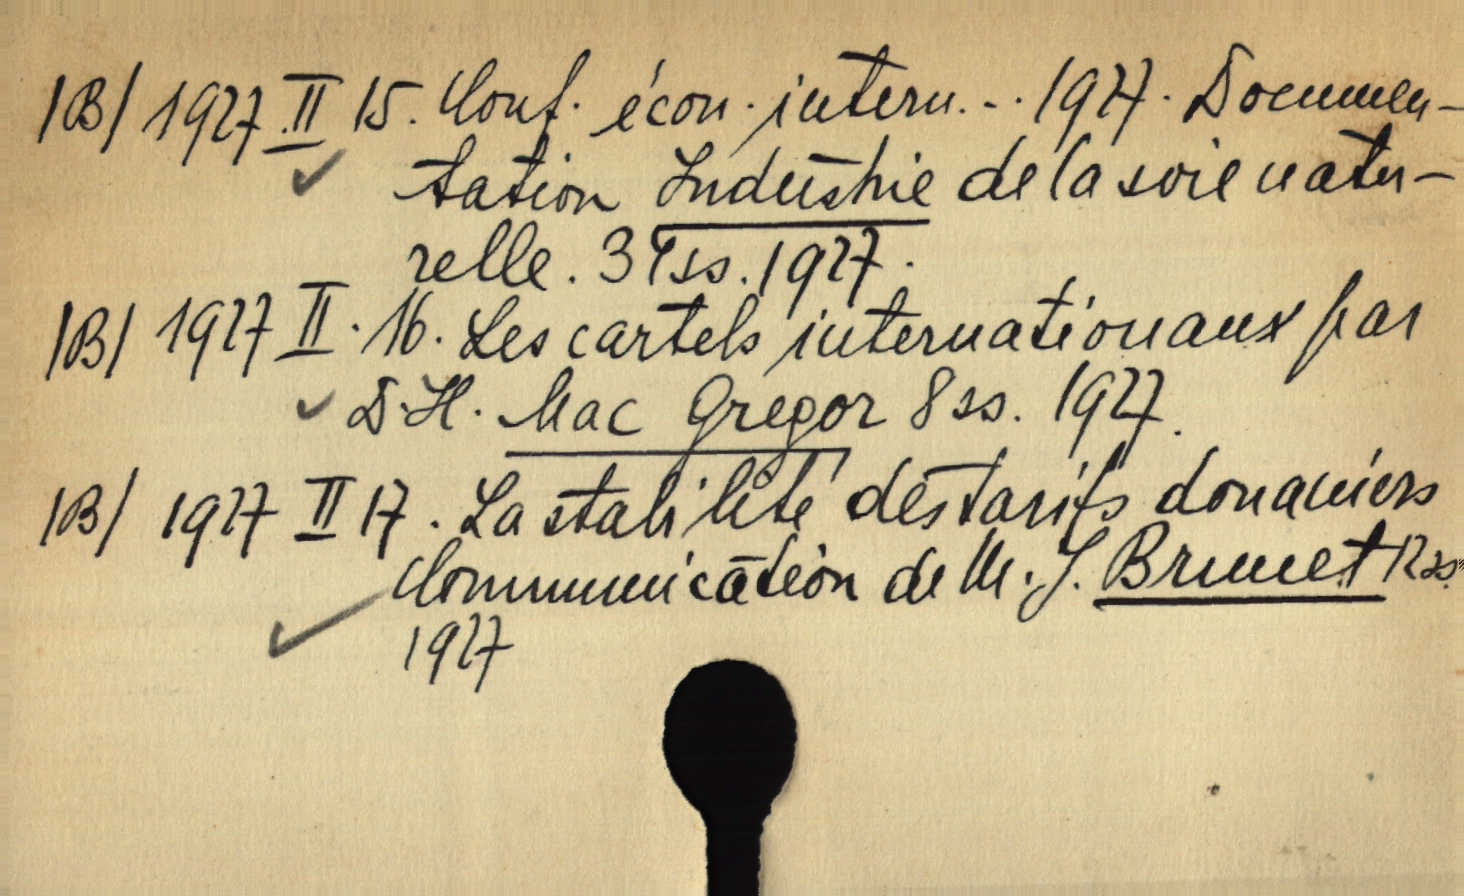 /B/ 1927 II 15. Conf. écon. intern... 1927. Documen-
tation Industrie de la soie natu-
relle. 39 ss. 1927.
/B/ 1927 II. 16. Les cartels internationaux par
D. H. Mac Gregor 8 ss. 1927.
/B/ 1927 II 17. La stabilité des tarifs douaniers
Communication de M. J. Brunet 12 ss.
1927